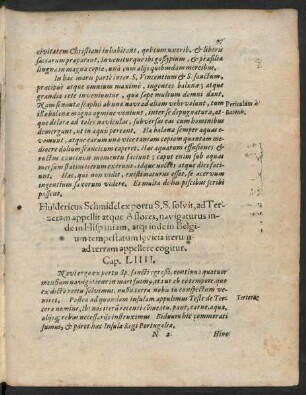 civitatem Christiani inhabitant, qui cum uxorib. & liberis
saccarum præparant, Invenitur que ibi gossypium, & prasilia
ligna in magna copia, unà cum aliis quibusdam mercibus.
In hac maris parte inter S. Vincentium & S. sanctum,
præcipuè atque omnium maximè, ingentes balenæ, atque
grandia cete inveniuntur, quæ sæpe multum damni dant.
Nam si nautæ scaphis ab una nave ad aliam vehi volunt, tum
illæ balenæ magno agmine veniunt, inter se depugnatura, at-
que delatæ ad tales naviculas, subversas sæpe cum hominibus
demergunt, ut in aqua pereant. Hæ balenæ semper aquas e-
vomunt, atque earum una vice tantam copiam quantum
mediocre dolium Francicum caperet. Hac aquarum effusiones &
continuò momento faciunt, caput enim sub aquas
mersum statim iterum extrahunt, atque undas
ejaciunt. Hac, qui non vidit, existimaturus esset, se acervum
ingentium saxorum videre. Et multa de his piscibus scribi
possent.
Periculum à
balenis.
Huldericus Schmidel ex portu S. S. solvit, ad Ter-
zeram appellit atque Assores, navigaturus in-
de in Hispaniam, atque inde in Belgi-
um tempestatum sævitia iterum
ad terram appellere cogitur.
Cap. LIIII.
Navi ergo ex portu Sp. sancti egressi, continuò quatuor
mensium navigatione in mari fuimus, ita ut ab eo tempore, quo
ex dicto portu solvimus, nulla terra nobis in conspectum ve-
niret. Postea ad quandam insulam appulimus Teste de Ter-
cero nomine, ibi nostra iterum recenti commeatu, pane, carne, aqua,
aliisque rebus necessariis instruximus. Biduum hîc commorati
sumus, & paret hæc Insula Regi Portugaliæ.
Terceræ.
N 2 Hinc